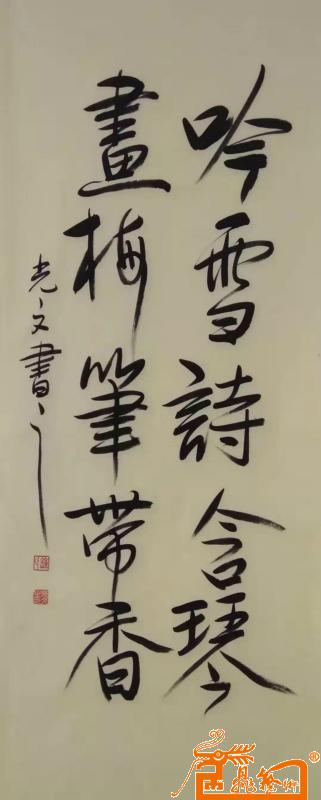 吟雪詩含琴
畫梅筆帶香
光文書之